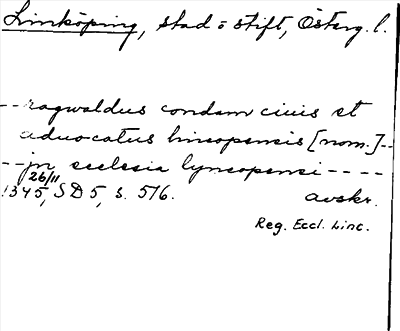 Linköping, stad o stift, Österg. l.
--ragwaldus condam ciuis et
aduocatus lincopensis [nom.]--
--jn ecclesia lyncopensi----
26/11
1345, SD 5, s. 516. avskr.
Reg. Eccl. Linc.